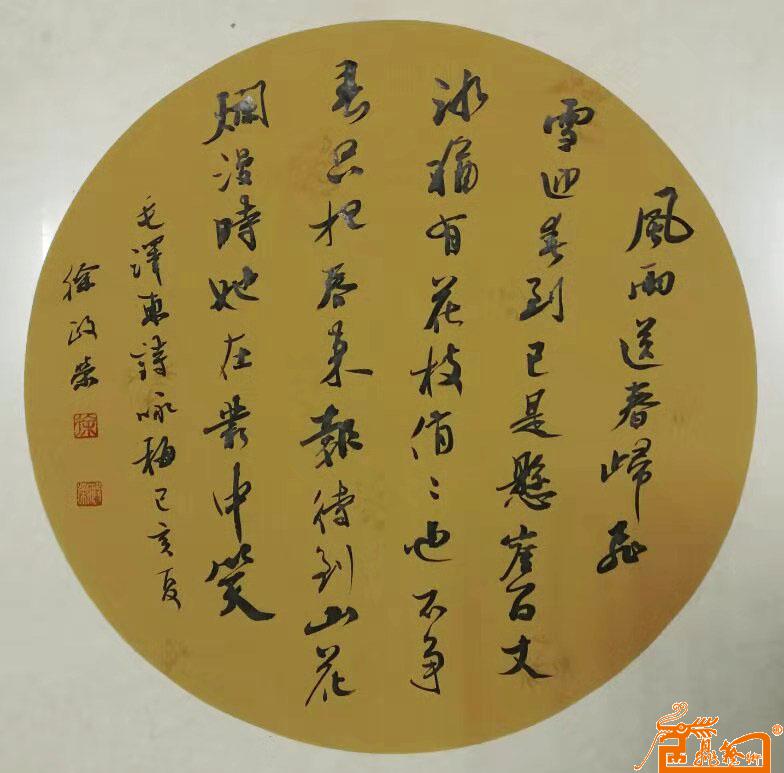 風雨送春歸飛
雪迎春到已是懸崖百丈
冰猶有花枝俏〻也不爭
春只把春來報待到山花
爛漫時她在叢中笑
毛澤東詩咏梅己亥夏
徐政榮
徐